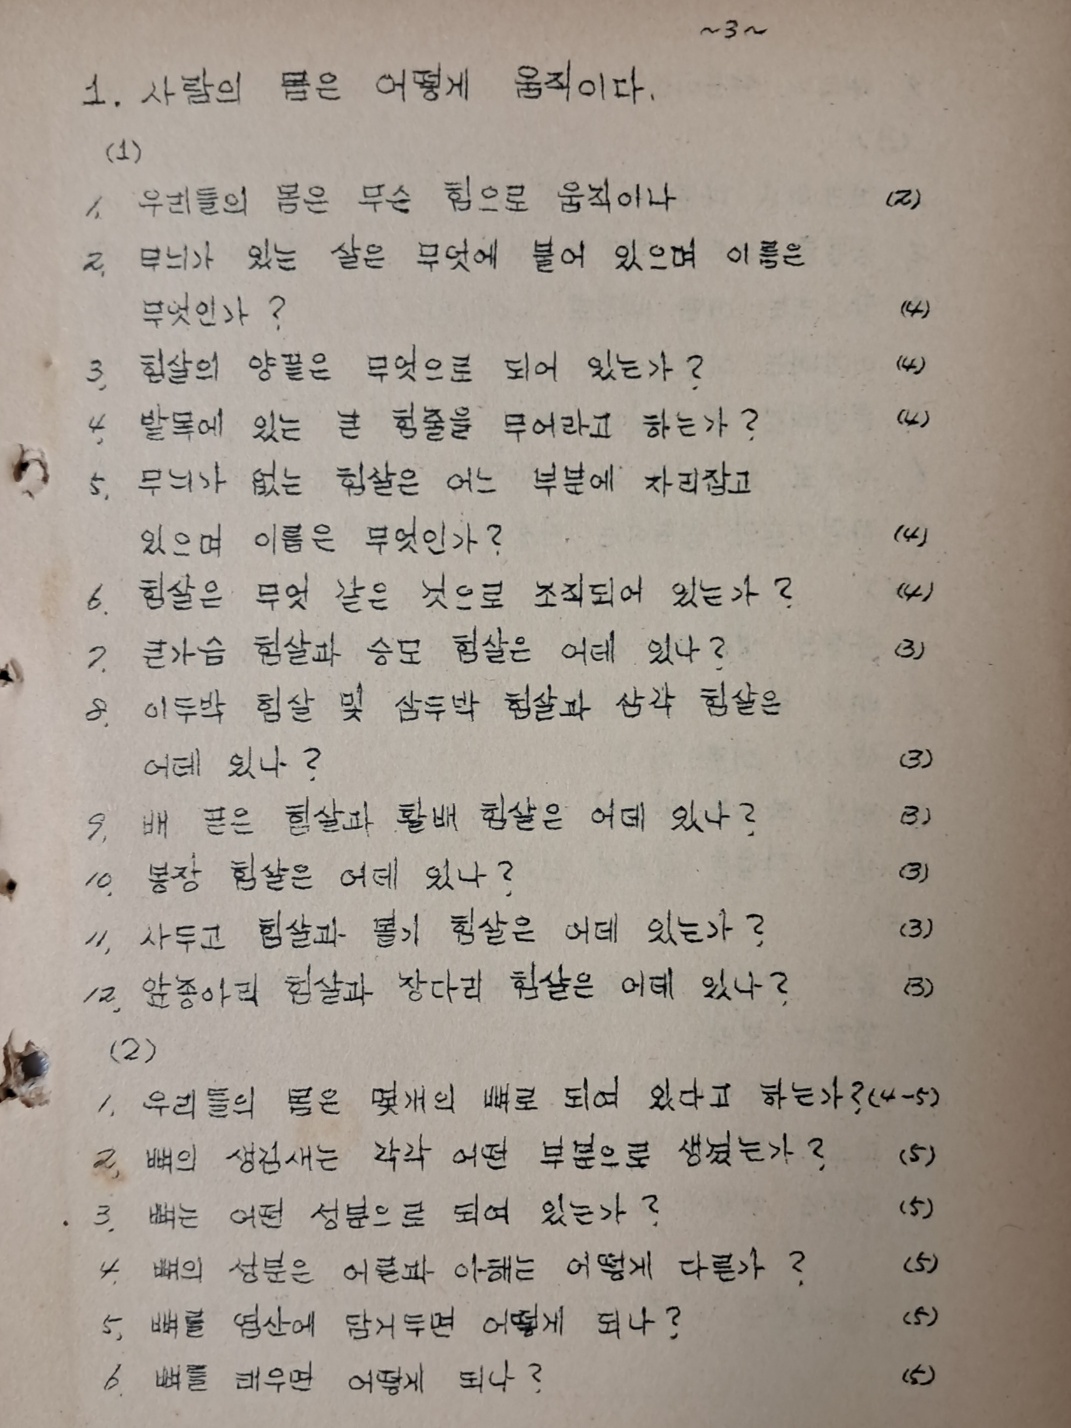 ~3~
1. 사람의 몸은 어떻게 움직이다.
(1)
1. 우리들의 몸은 무슨 힘으로 움직이나 (2)
2. 무늬가 있는 살은 무엇에 붙어 있으며 이름은
무엇인가? (4)
3. 힘살의 양끝은 무엇으로 되어 있는가? (4)
4. 발목에 있는 큰 힘줄을 무어라고 하는가? (4)
5. 무늬가 없는 힘살은 어느 부분에 자리잡고
있으며 이름은 무엇인가? (4)
6. 힘살은 무엇 같은 것으로 조직되어 있는가? (4)
7. 큰가슴 힘살과 승모 힘살은 어데 있나? (3)
8. 이두박 힘살 및 삼두박 힘살과 삼각 힘살은
어데 있나? (3)
9. 배 곧은 힘살과 활배 힘살은 어데 있나? (3)
10. 봉장 힘살은 어데 있나? (3)
11. 사두고 힘살과 볼기 힘살은 어데 있는가? (3)
12. 앞종아리 힘살과 장다리 힘살은 어데 있나? (3)
(2)
1. 우리들의 몸은 몇개의 뼈로 되여 있다고 하는가? (4-5)
2. 뼈의 생김새는 각각 어떤 부분으로 생겼는가? (5)
3. 뼈는 어떤 성분으로 되여 있는가? (5)
4. 뼈의 성분은 어른과 아해는 어떻게 다른가? (5)
5. 뼈를 염산에 담거두면 어떻게 되나? (5)
6. 뼈를 태우면 어떻게 되나? (5)